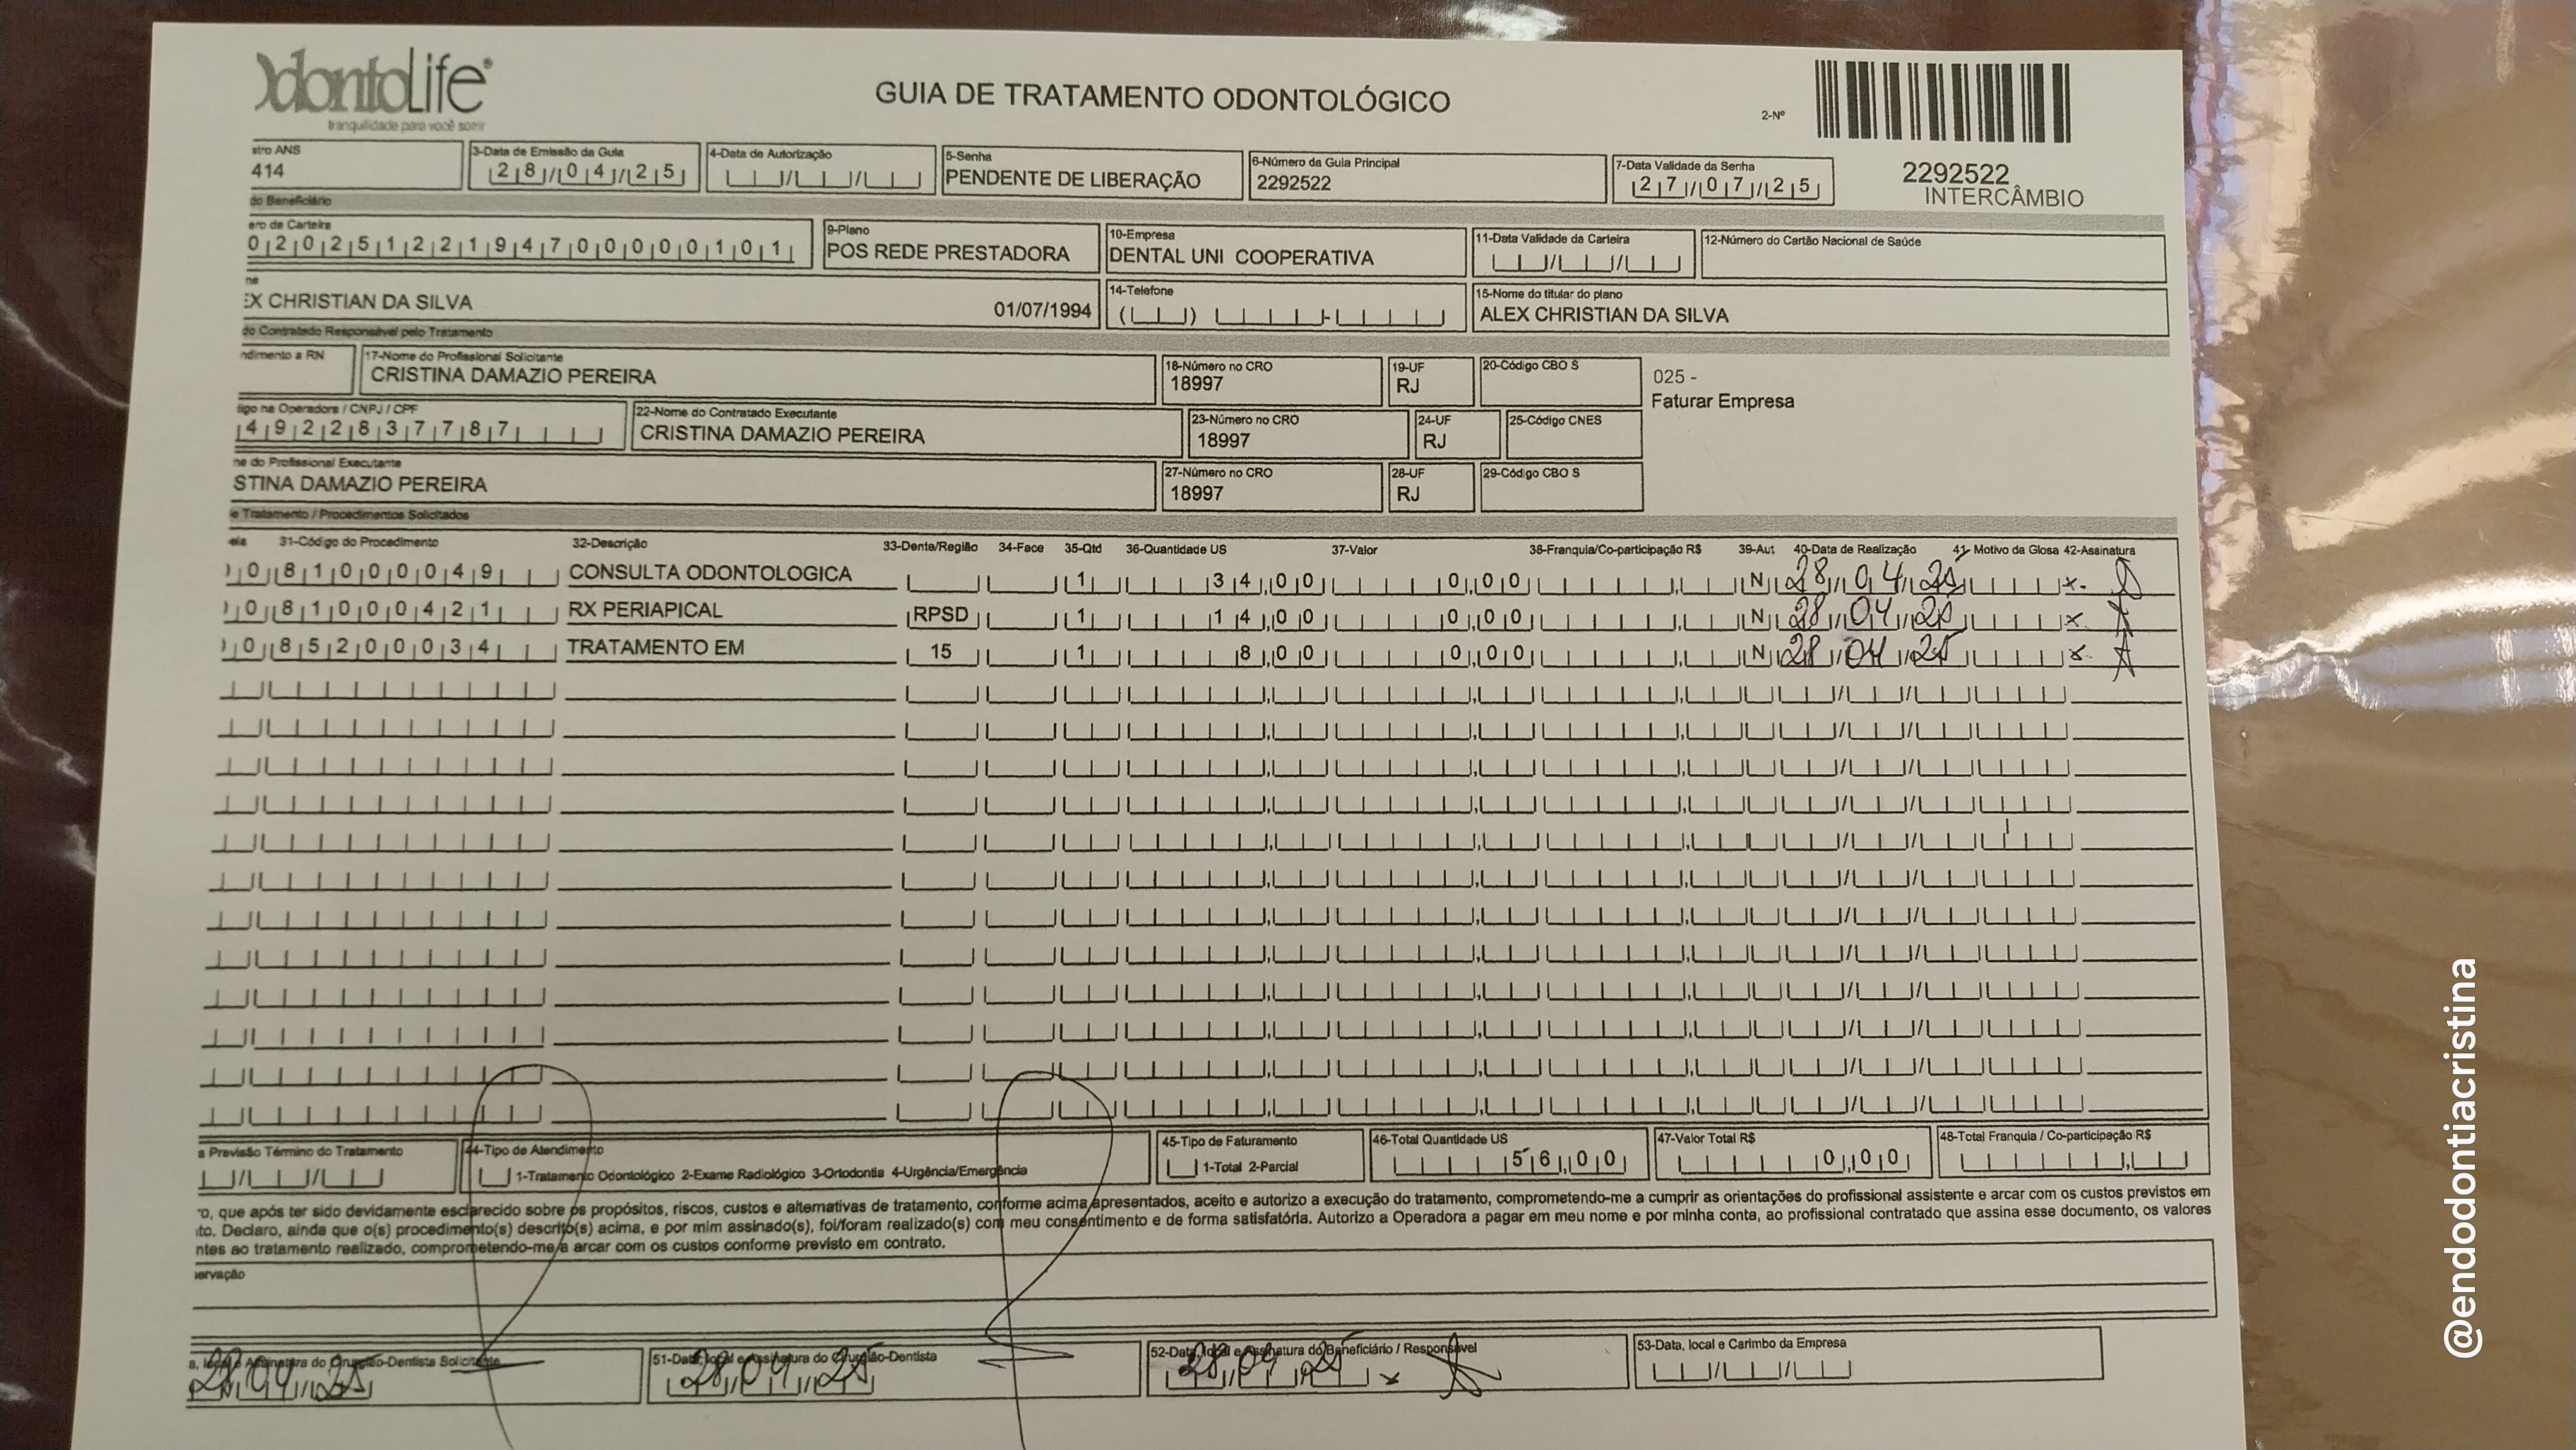 OdontoLife®
tranquilidade para você sorrir
GUIA DE TRATAMENTO ODONTOLÓGICO
2-Nº
2292522
INTERCÂMBIO
stro ANS
414
3-Data de Emissão da Guia
28/04/25
4-Data de Autorização
5-Senha
PENDENTE DE LIBERAÇÃO
6-Número da Guia Principal
2292522
7-Data Validade da Senha
27/07/25
do Beneficiário
ero da Carteira
02025122194700000101
9-Plano
POS REDE PRESTADORA
10-Empresa
DENTAL UNI COOPERATIVA
11-Data Validade da Carteira
12-Número do Cartão Nacional de Saúde
ne
EX CHRISTIAN DA SILVA
01/07/1994
14-Telefone
15-Nome do titular do plano
ALEX CHRISTIAN DA SILVA
do Contratado Responsável pelo Tratamento
ndimento a RN
17-Nome do Profissional Solicitante
CRISTINA DAMAZIO PEREIRA
18-Número no CRO
18997
19-UF
RJ
20-Código CBO S
025 -
Faturar Empresa
igo na Operadora / CNPJ / CPF
49228377787
22-Nome do Contratado Executante
CRISTINA DAMAZIO PEREIRA
23-Número no CRO
18997
24-UF
RJ
25-Código CNES
ne do Profissional Executante
STINA DAMAZIO PEREIRA
27-Número no CRO
18997
28-UF
RJ
29-Código CBO S
e Tratamento / Procedimentos Solicitados
ela 31-Código do Procedimento 32-Descrição 33-Dente/Região 34-Face 35-Qtd 36-Quantidade US 37-Valor 38-Franquia/Co-participação R$ 39-Aut 40-Data de Realização 41- Motivo da Glosa 42-Assinatura
0 81000049 CONSULTA ODONTOLOGICA 1 34,00 0,00 N 28/04/25 x
0 81000421 RX PERIAPICAL RPSD 1 14,00 0,00 N 28/04/25 x
0 85200034 TRATAMENTO EM 15 1 8,00 0,00 N 28/04/25 x
a Previsão Término do Tratamento
44-Tipo de Atendimento
1-Tratamento Odontológico 2-Exame Radiológico 3-Ortodontia 4-Urgência/Emergência
45-Tipo de Faturamento
1-Total 2-Parcial
46-Total Quantidade US
56,00
47-Valor Total R$
0,00
48-Total Franquia / Co-participação R$
ro, que após ter sido devidamente esclarecido sobre os propósitos, riscos, custos e alternativas de tratamento, conforme acima apresentados, aceito e autorizo a execução do tratamento, comprometendo-me a cumprir as orientações do profissional assistente e arcar com os custos previstos em
ito. Declaro, ainda que o(s) procedimento(s) descrito(s) acima, e por mim assinado(s), foi/foram realizado(s) com meu consentimento e de forma satisfatória. Autorizo a Operadora a pagar em meu nome e por minha conta, ao profissional contratado que assina esse documento, os valores
ntes ao tratamento realizado, comprometendo-me a arcar com os custos conforme previsto em contrato.
servação
a, local e Assinatura do Cirurgião-Dentista Solicitante
28/04/25
51-Data, local e Assinatura do Cirurgião-Dentista
28/04/25
52-Data, local e Assinatura do Beneficiário / Responsável
28/04/25 x
53-Data, local e Carimbo da Empresa
@endodontiacristina